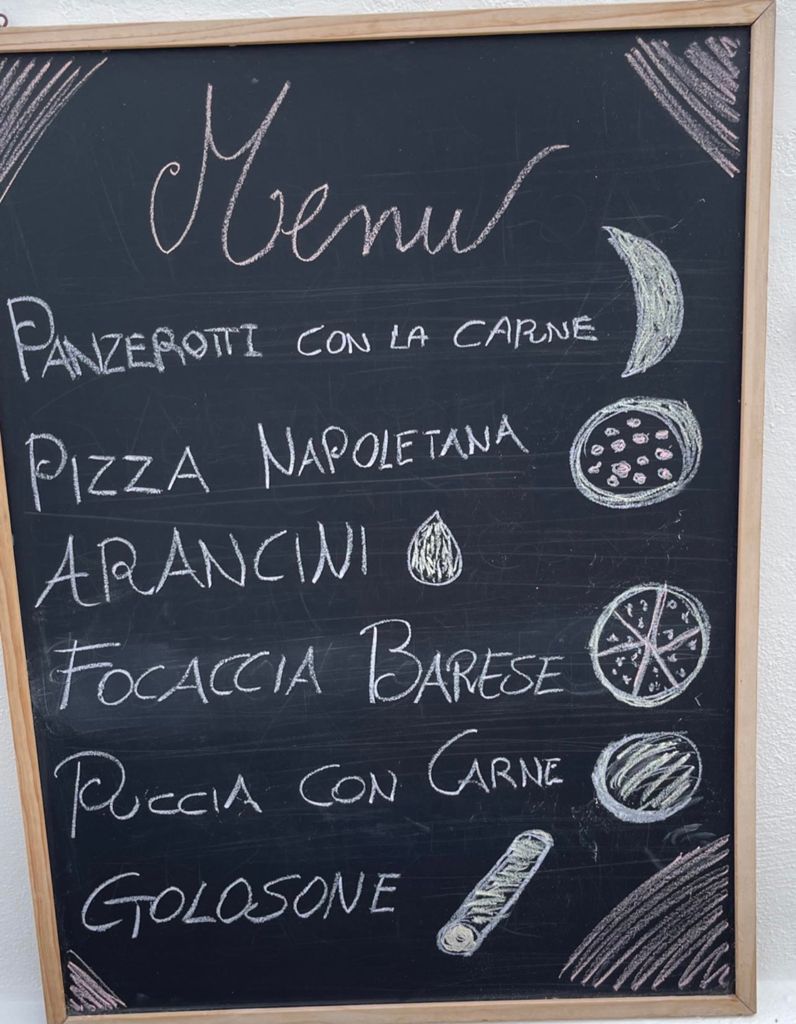 Menu
PANZEROTTI CON LA CARNE
PIZZA NAPOLETANA
ARANCINI
FOCACCIA BARESE
PUCCIA CON CARNE
GOLOSONE